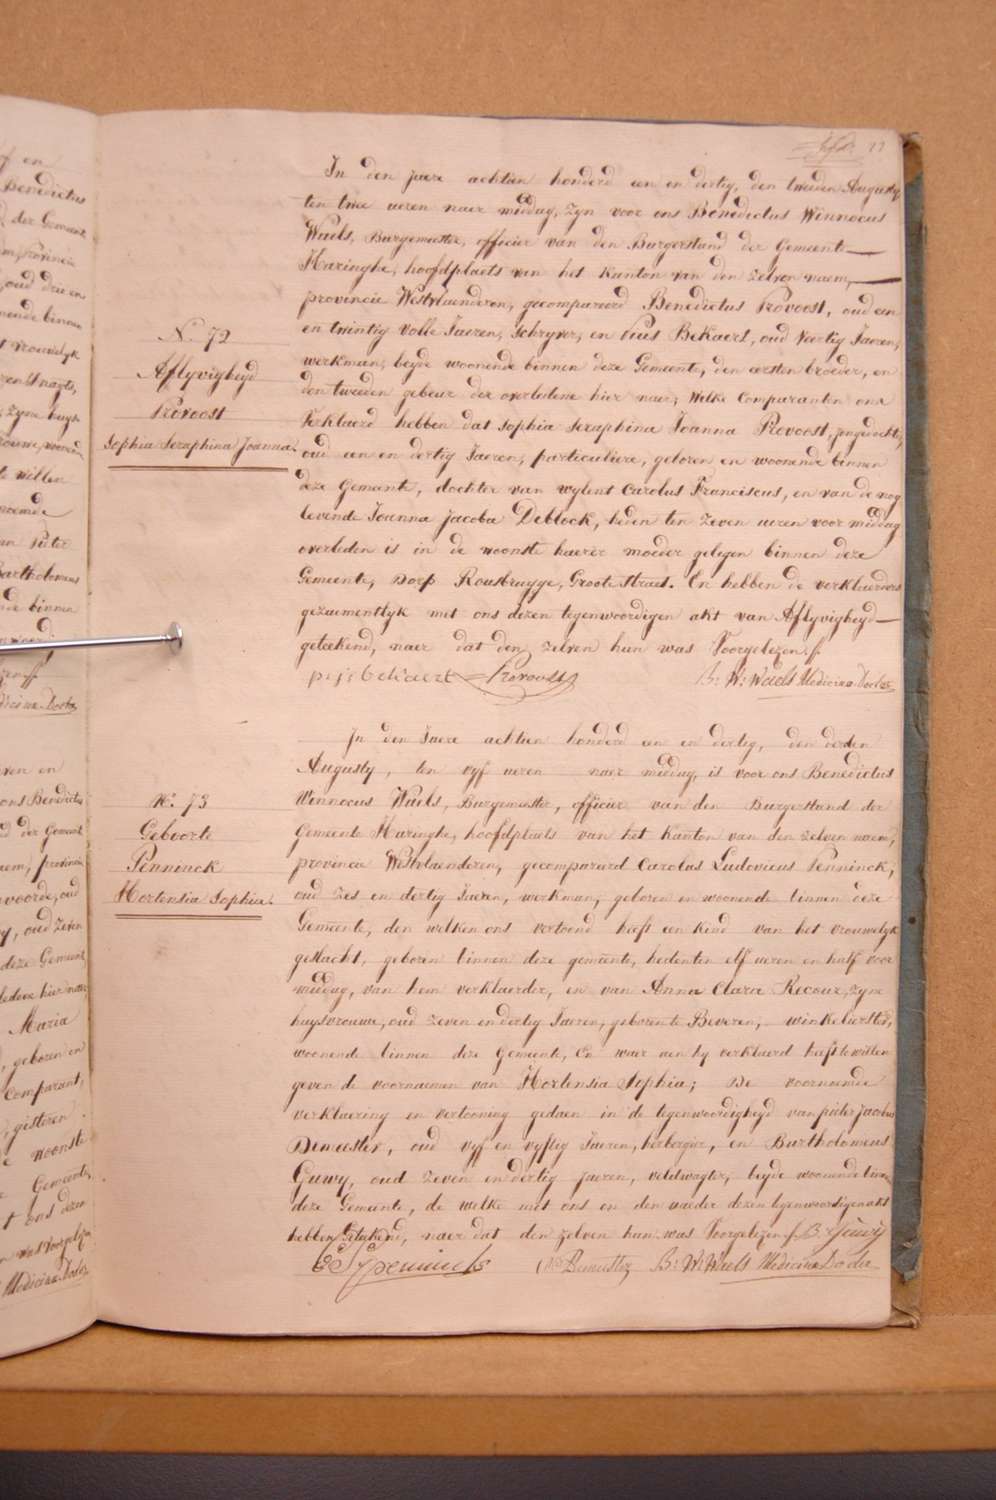 22
In den jaere achtien honderd een en dertig, den tweeden Augusty
ten twee ueren naer middag, Zyn voor ons Benedictus Winnocus
Waels, Burgemeester, officier van den Burgerstand der Gemeente
Haringhe, hoofdplaets van het Kanton van den zelven naem,
provincie Westvlaenderen, gecompareerd Benedictus Provoost, oud een
en twintig volle Jaeren, Schryver, en Pius Bekaert, oud veertig Jaeren,
werkman, beyde woonende binnen deze Gemeente, den eersten broeder, en
den tweeden gebeur der overledene hier naer; Welke Comparanten ons
Verklaerd hebben dat Sophia Seraphina Joanna Provoost, jongedochter,
oud een en dertig Jaeren, particuliere, geboren en woonende binnen
deze Gemeente, dochter van wylent Carolus Franciscus, en van de nog
levende Joanna Jacoba Deblock, heden ten zeven ueren voor middag
overleden is in de woonste haerer moeder gelegen binnen deze
Gemeente, Dorp Rousbrugge, Groote Straet. En hebben de verklaerders
gezaementlyk met ons dezen tegenwoordigen akt van Aflyvigheyd
geteekend, naer dat den zelven hun was Voorgelezen.
N. 72
Aflyvigheyd
Provoost
Sophia Seraphina Joanna.
p j s bekaert Provoost B: W: Waels Medicinæ Doctor
In den Jaere achtien honderd een en dertig, den derden
Augusty, ten vyf ueren naer middag, is voor ons Benedictus
Winnocus Waels, Burgemeester, officier van den Burgerstand der
Gemeente Haringhe, hoofdplaets van het Kanton van den zelven naem,
provincie Westvlaenderen, gecompareerd Carolus Ludovicus Penninck,
oud zes en dertig Jaeren, werkman, geboren en woonende binnen deze
Gemeente, den welken ons vertoond heeft een Kind van het vrouwelyk
geslacht, geboren binnen deze gemeente, heden ten elf ueren en half voor
middag, van hem verklaerder, en van Anna Clara Recour, zyne
huysvrouwe, oud zeven en dertig Jaeren, geboren te Beveren, winkelierster,
woonende binnen deze Gemeente, En waer aen hy verklaerd heeft te willen
geven de voornaemen van Hortensia Sophia; De voornoemde
verklaering en vertooning gedaen in de tegenwoordigheyd van pieter jacobus
Demeester, oud vyf en vyftig Jaeren, herbergier, en Bartholomeus
Guwy, oud zeven en dertig jaeren, veldwagter, beyde woonende binnen
deze Gemeente, de welke met ons en den vaeder dezen tegenwoordigen akt
hebben geteekend, naer dat den zelven hun was Voorgelezen B: Guwy
N.º 73
Geboorte
Penninck
Hortensia Sophia.
penninck Demeester B: W: Waels Medicinæ Doctor